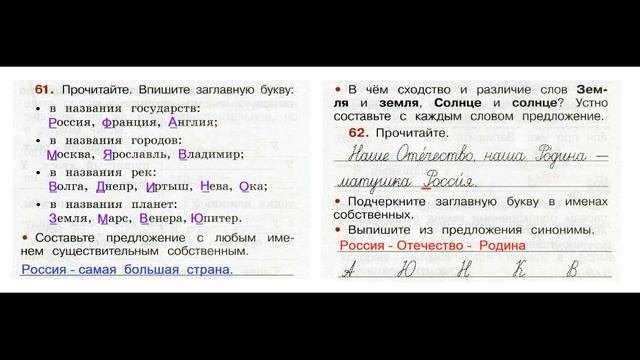 61. Прочитайте. Впишите заглавную букву:
• в названия государств:
Россия, Франция, Англия;
• в названия городов:
Москва, Ярославль, Владимир;
• в названия рек:
Волга, Днепр, Иртыш, Нева, Ока;
• в названия планет:
Земля, Марс, Венера, Юпитер.
• Составьте предложение с любым име-
нем существительным собственным.
Россия - самая большая страна.
• В чём сходство и различие слов Зем-
ля и земля, Солнце и солнце? Устно
составьте с каждым словом предложение.
62. Прочитайте.
Наше Оте́чество, наша Ро́дина —
матушка Росси́я.
• Подчеркните заглавную букву в именах
собственных.
• Выпишите из предложения синонимы.
Россия - Отечество - Родина
А Ю Н К В